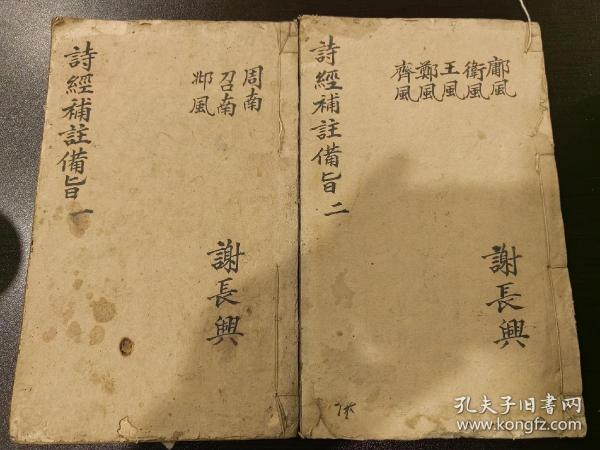 詩經補註備旨 一
周南
召南
邶風
謝長興
詩經補註備旨 二
鄘風
衛風
王風
鄭風
齊風
謝長興
孔夫子旧书网
www.kongfz.com